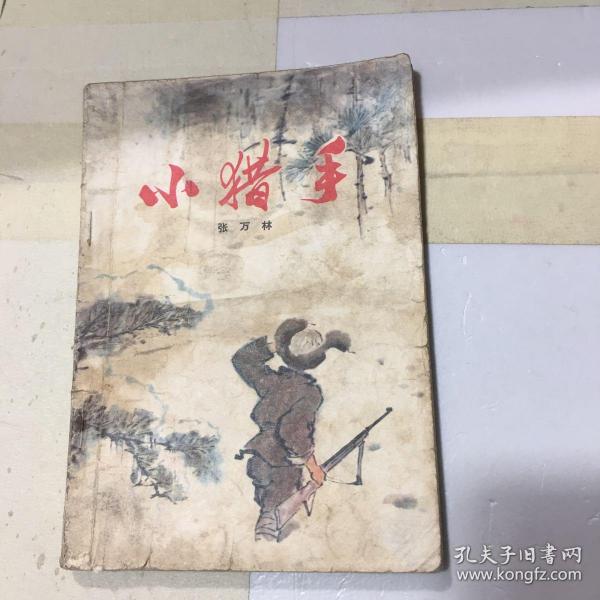 小猎手
张万林
孔夫子旧书网
www.kongfz.com